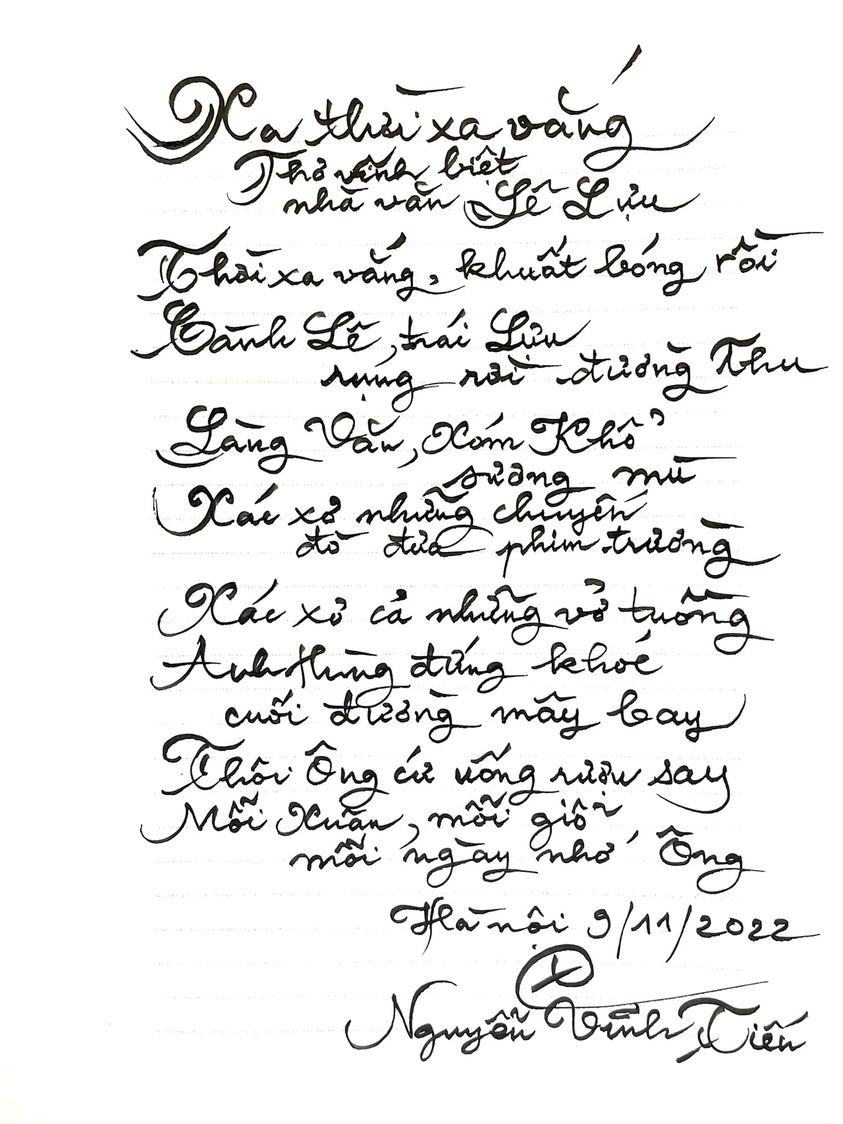 Xa thời xa vắng
Thơ vĩnh biệt
nhà văn Lê Lựu
Thời xa vắng, khuất bóng rồi
Cành Lê, trái Lựu
rụng rời đường Thu
Làng Văn, Xóm Khổ
sương mù
Xác xơ những chuyến
đò đưa phim trường
Xác xơ cả những vở tuồng
Anh Hùng đứng khóc
cuối đường mây bay
Thôi Ông cứ uống rượu say
Mỗi Xuân, mỗi giỗ
mỗi ngày nhớ Ông
Hà nội 9/11/2022
Nguyễn Vĩnh Tiến